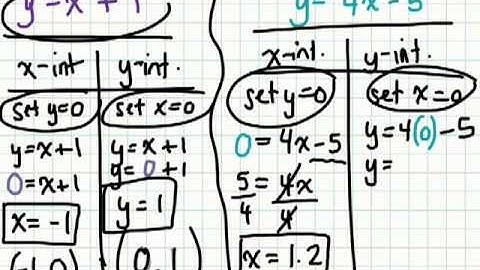 y=x+1
x-int y-int.
set y=0 set x=0
y=x+1 y=x+1
0=x+1 y=0+1
x=-1 y=1
(-1,0) (0,1)
y=4x-5
x-int. y-int.
set y=0 set x=0
0=4x-5 y=4(0)-5
5/4=4x/4 y=
x=1.2